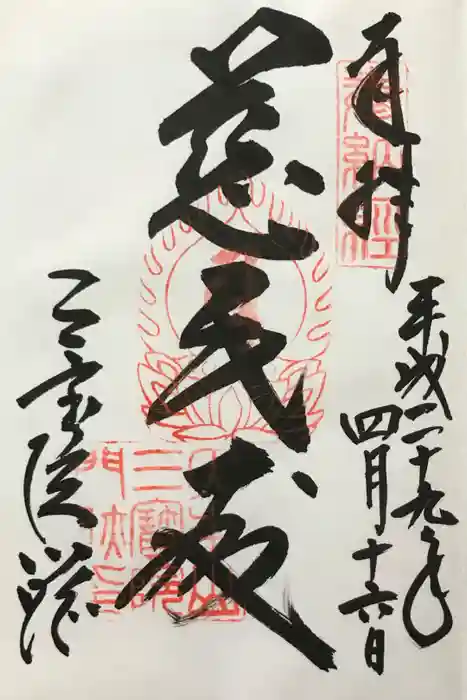 奉拝
平成二十九年
四月十六日
慈氏殿
三宝院
三寶院
門跡印